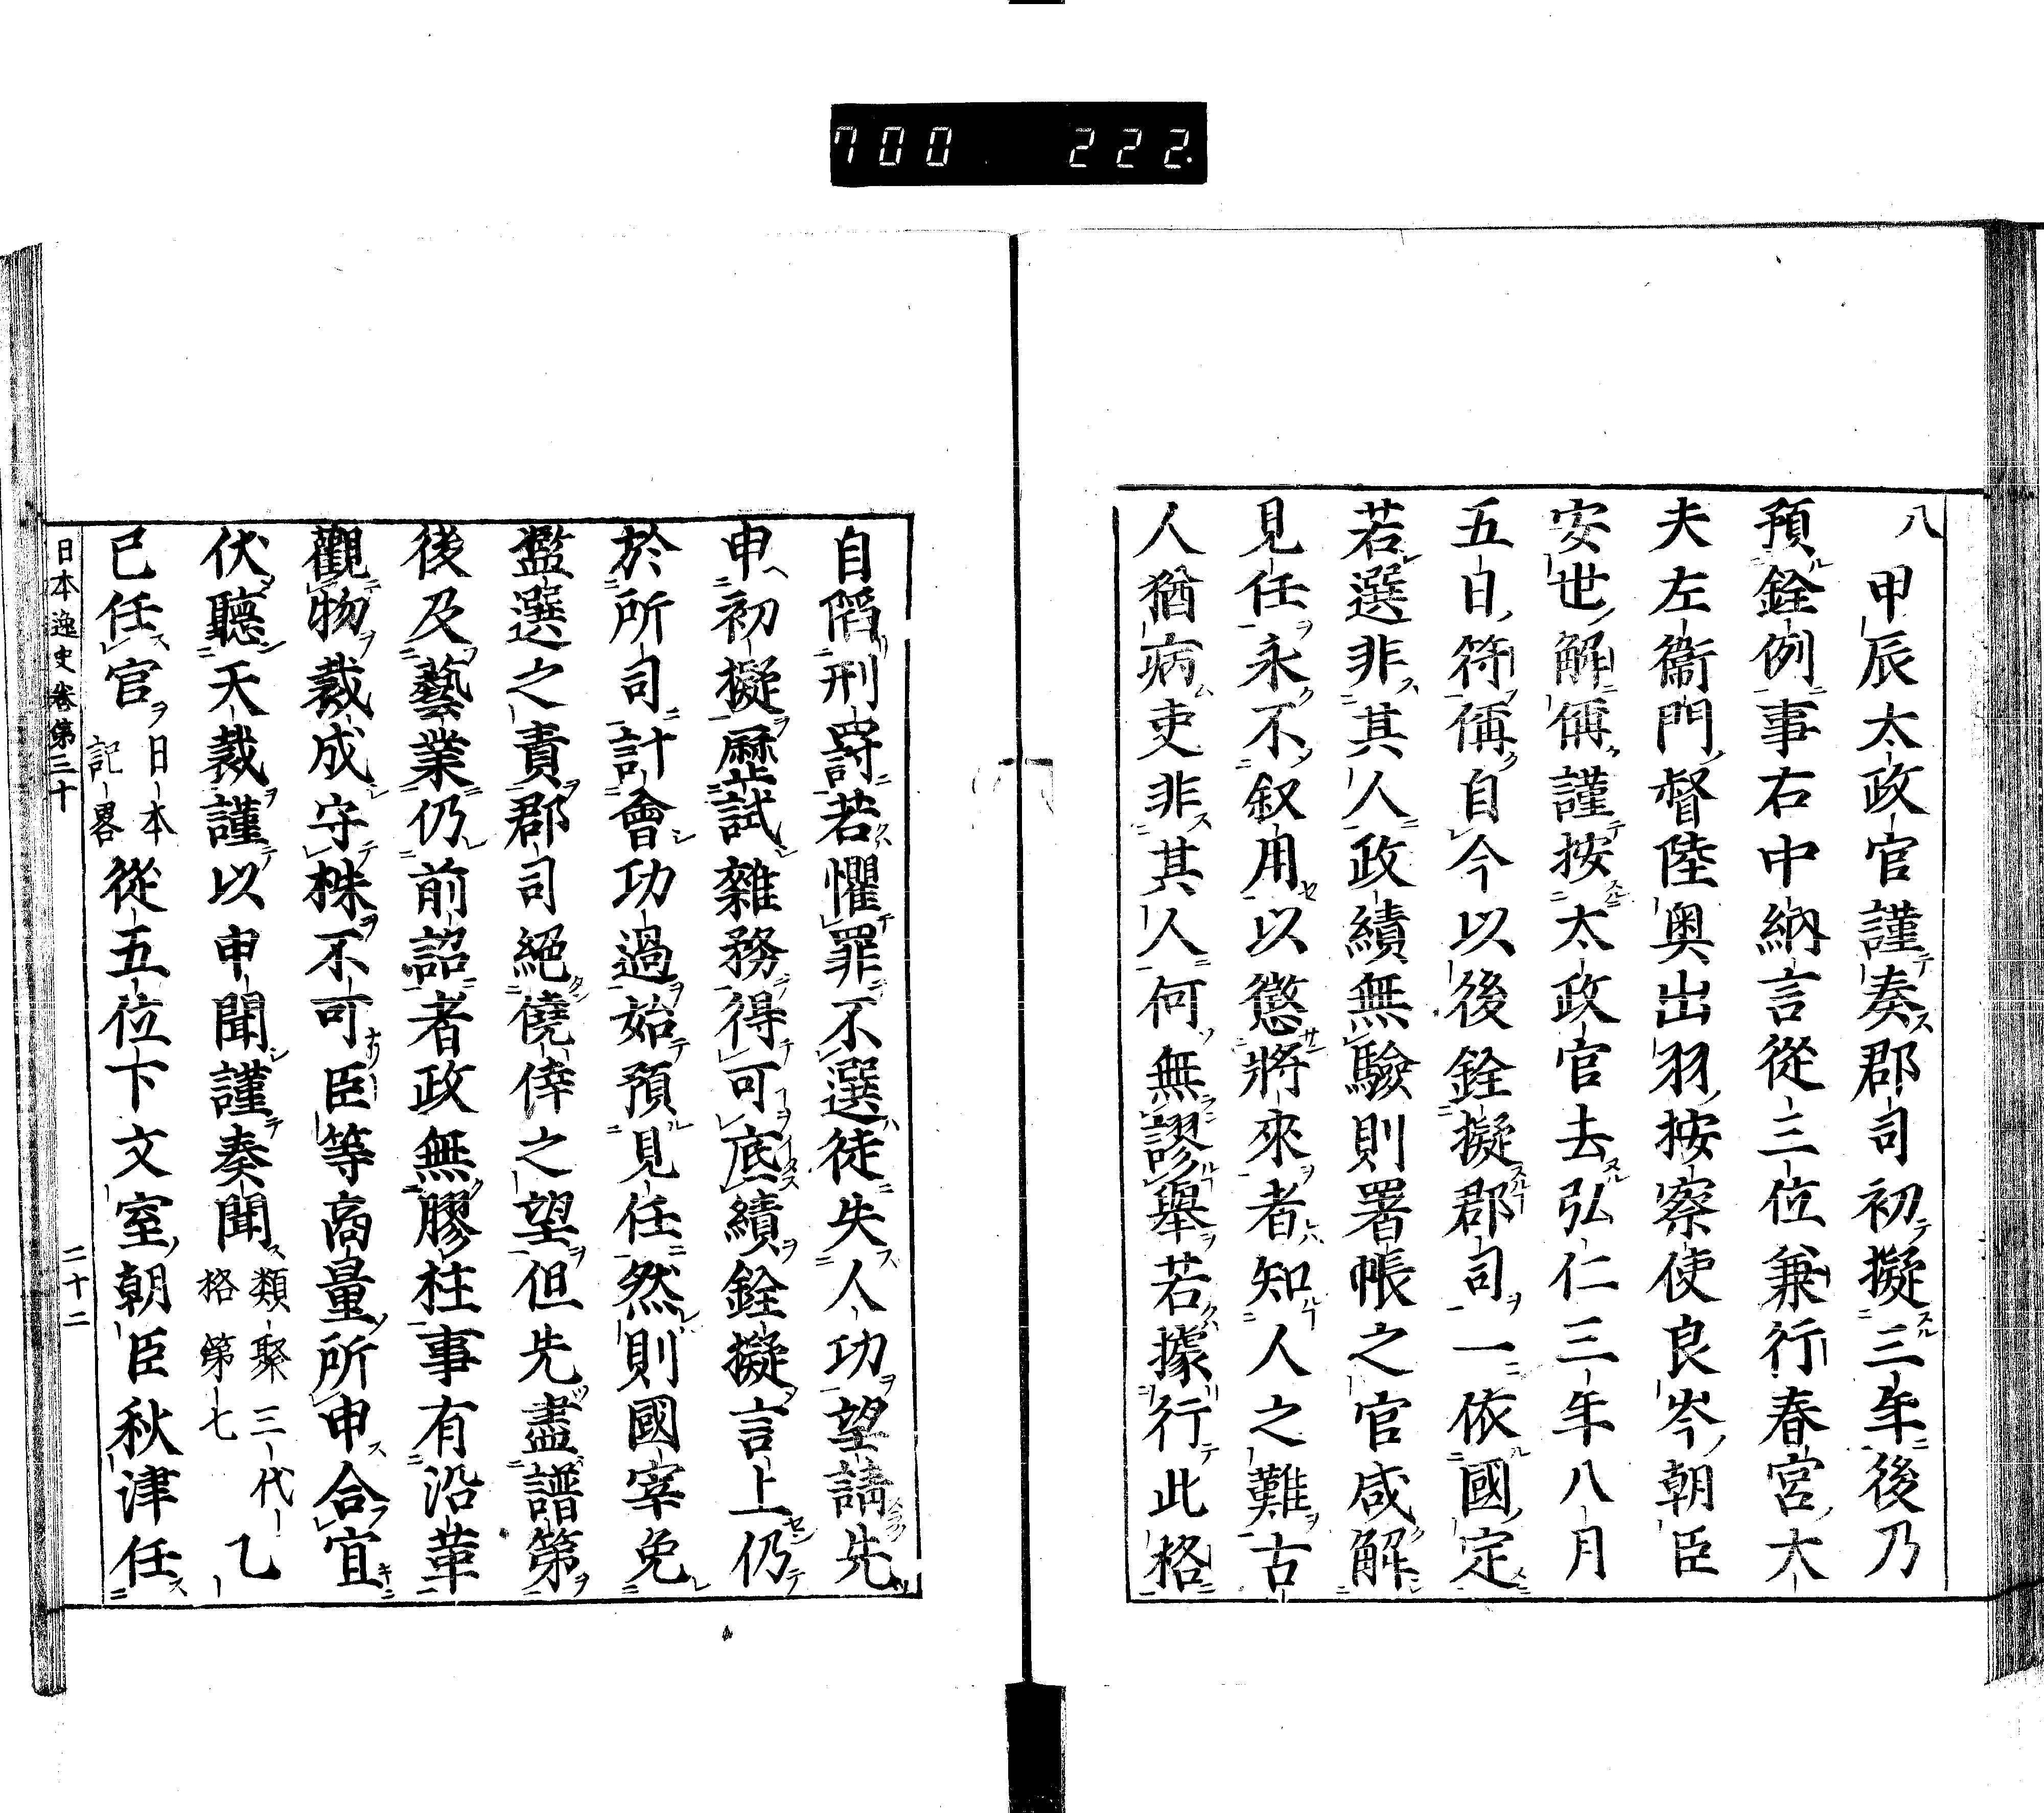 700 222
八
甲辰太政官謹奏郡司初擬三年後乃
預銓例事右中納言從三位兼行春宮大
夫左衞門督陸奥出羽按察使良岑朝臣
安世解偁謹按太政官去弘仁三年八月
五日符偁自今以後銓擬郡司一依國定
若選非其人政績無驗則署帳之官咸解
見任永不叙用以懲將來者知人之難古
人猶病吏非其人何無謬舉若據行此格
自䧟刑罸若懼罪不選徒失人功望請先
申初擬歷試雜務得可底績銓擬言上仍
於所司計會功過始預見任然則國宰免
濫選之責郡司絕僥倖之望但先盡譜第
後及藝業仍前詔者政無膠柱事有沿革
觀物裁成守株不可臣等商量所申合宜
伏聽天裁謹以申聞謹奏聞類聚三代格第七乙
己任官日本記畧從五位下文室朝臣秋津任
日本逸史卷第三十 二十二